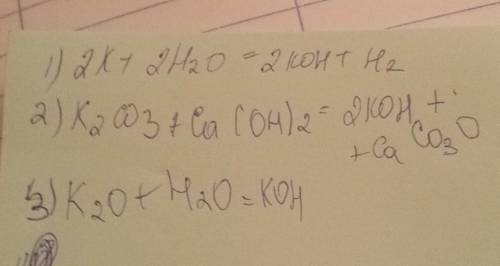 1) 2K + 2H2O = 2KOH + H2
2) K2CO3 + Ca(OH)2 = 2KOH +
+ CaCO3O
3) K2O + H2O = KOH